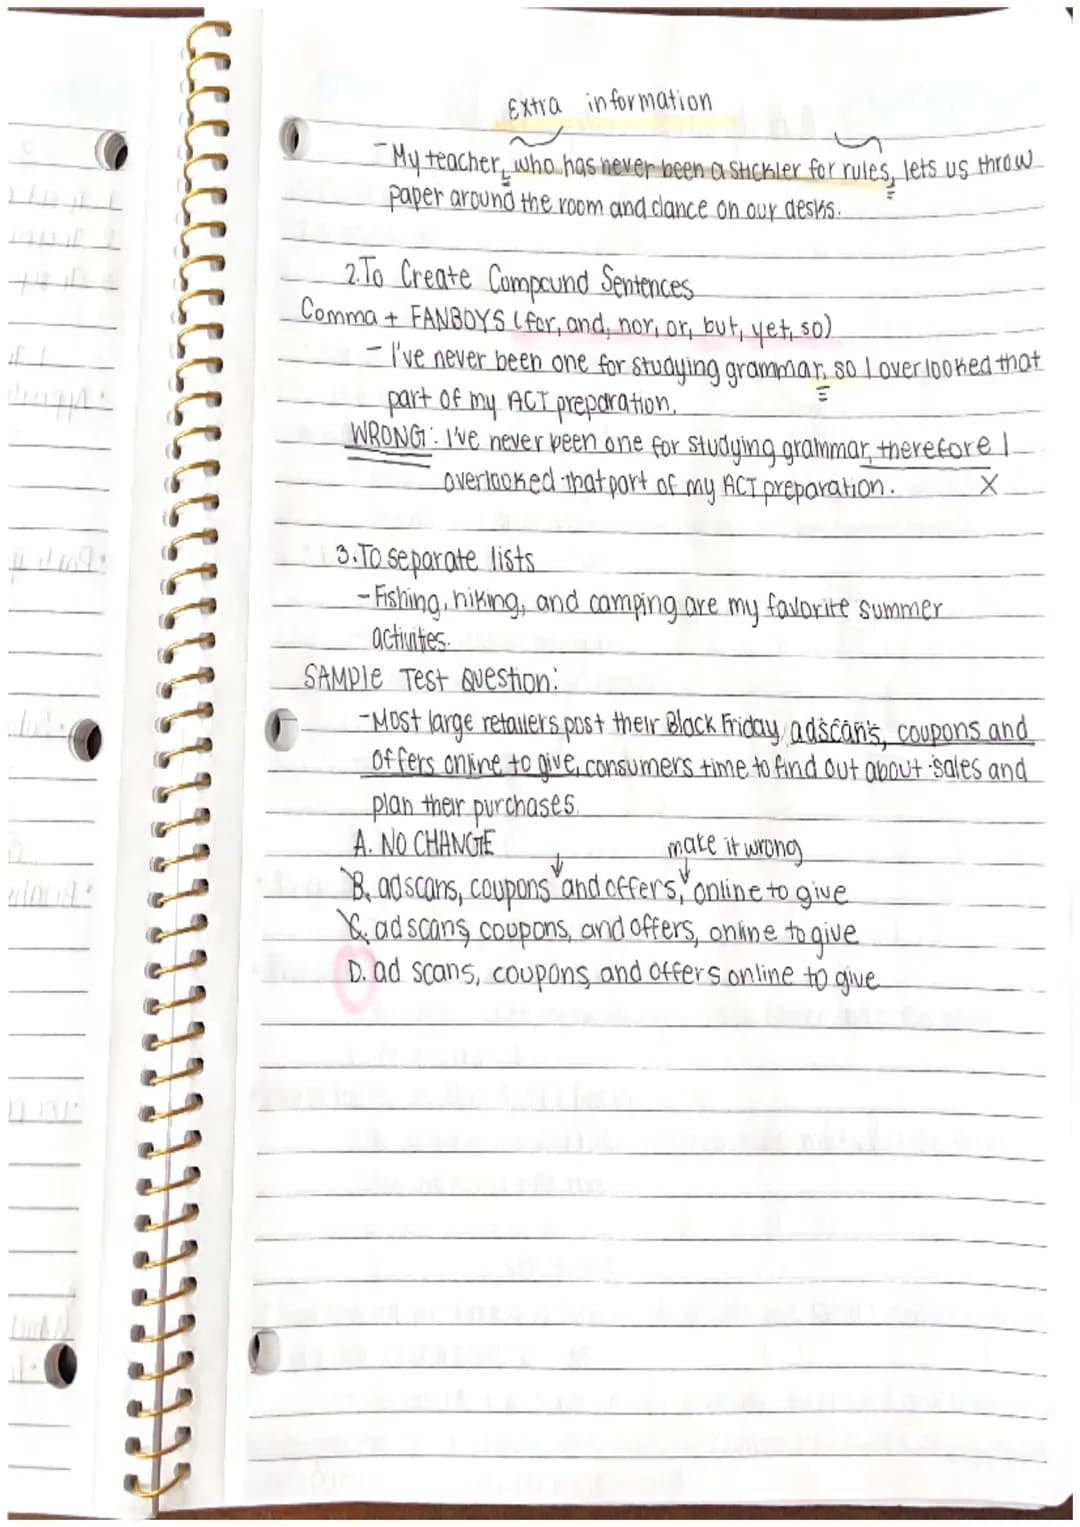 Extra information
- My teacher, who has never been a stickler for rules, lets us throw
paper around the room and dance on our desks.
2. To Create Compound Sentences
Comma + FANBOYS (for, and, nor, or, but, yet, so)
- I've never been one for studying grammar, so I overlooked that
part of my ACT preparation.
WRONG: I've never been one for studying grammar, therefore I
overlooked that part of my ACT preparation. X
3. To separate lists
- Fishing, hiking, and camping are my favorite summer
activities.
SAMPLE Test Question:
- Most large retailers post their Black Friday, coupons and
offers online to give, consumers time to find out about sales and
plan their purchases.
A. NO CHANGE
make it wrong
B. ad scans, coupons and offers, online to give
C. ad scans, coupons, and offers, online to give
D. ad scans, coupons, and offers online to give